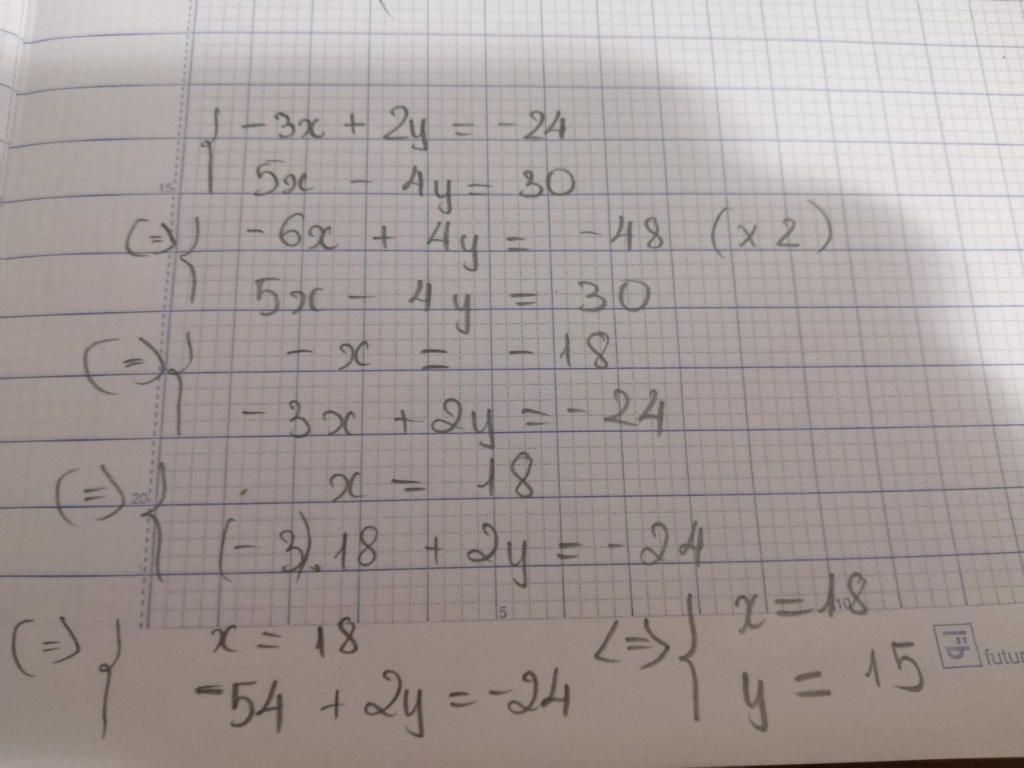 -3x + 2y = -24
5x - 4y = 30
15
(=) -6x + 4y = -48 (x 2)
5x - 4y = 30
(=) -x = -18
-3x + 2y = -24
(=) x = 18
20
(-3).18 + 2y = -24
5
10
(=) x = 18
-54 + 2y = -24
<=> x = 18
y = 15
futur